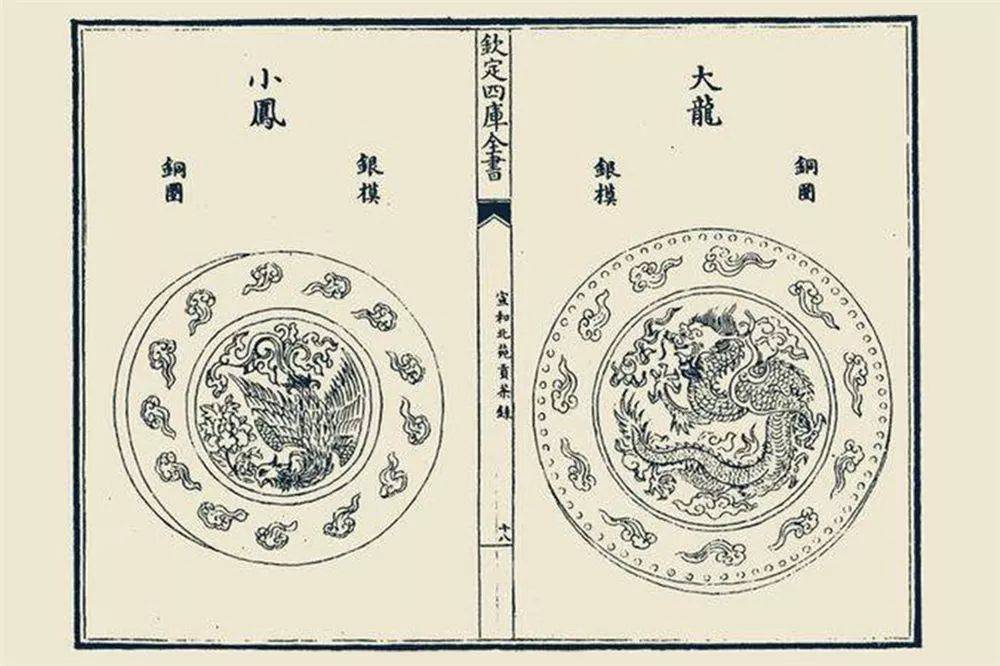 大龍
銅圈
銀模
欽定四庫全書
宣和北苑貢茶錄
十八
小鳳
銀模
銅圈